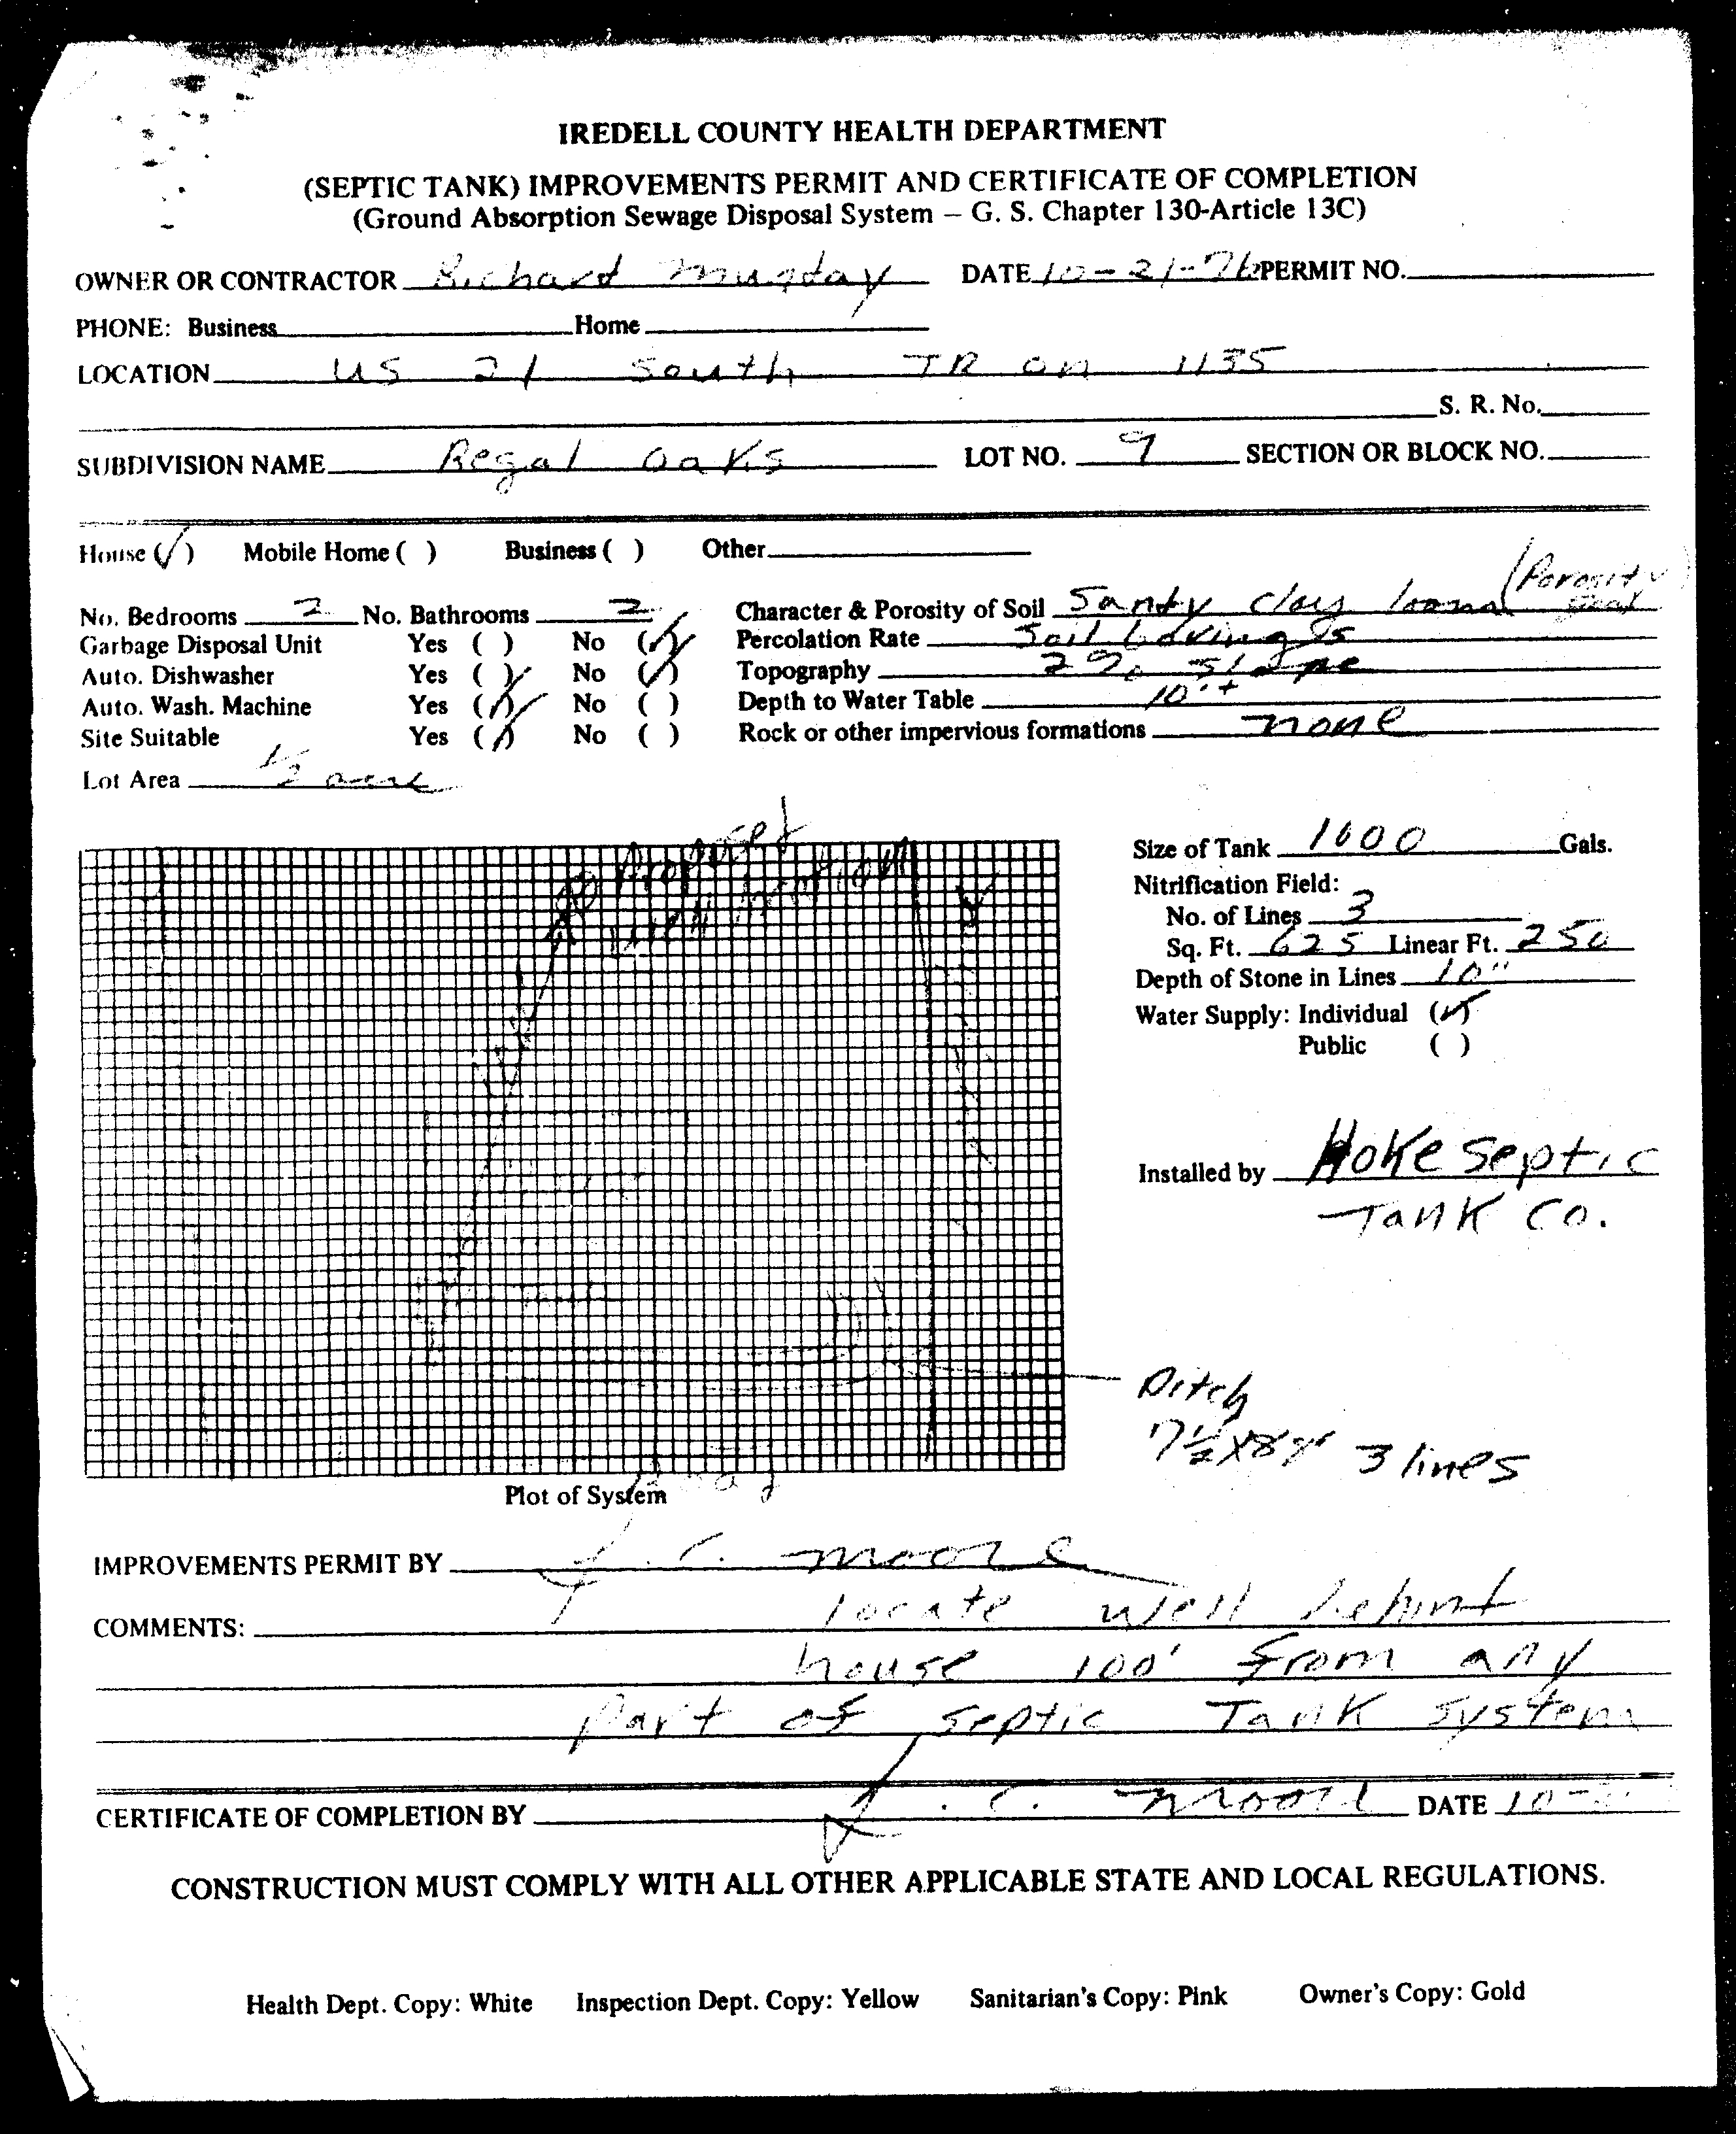 IREDELL COUNTY HEALTH DEPARTMENT
(SEPTIC TANK) IMPROVEMENTS PERMIT AND CERTIFICATE OF COMPLETION
(Ground Absorption Sewage Disposal System – G. S. Chapter 130-Article 13C)
OWNER OR CONTRACTOR Richard Munday DATE 10-21-76 PERMIT NO.
PHONE: Business Home
LOCATION US 21 South TR on 1135
S. R. No.
SUBDIVISION NAME Regal Oaks LOT NO. 9 SECTION OR BLOCK NO.
House (✓) Mobile Home ( ) Business ( ) Other
(Porosity
No. Bedrooms 2 No. Bathrooms 2 Character & Porosity of Soil Sandy clay loam
Garbage Disposal Unit Yes ( ) No (✓) Percolation Rate Soil borings
Auto. Dishwasher Yes ( ) No (✓) Topography 2% slope
Auto. Wash. Machine Yes (✓) No ( ) Depth to Water Table 10'+
Site Suitable Yes (✓) No ( ) Rock or other impervious formations none
Lot Area 1/2 acre
Proposed
well location
Size of Tank 1000 Gals.
Nitrification Field:
No. of Lines 3
Sq. Ft. 625 Linear Ft. 250
Depth of Stone in Lines 10"
Water Supply: Individual (✓)
Public ( )
Installed by Hoke Septic
Tank Co.
Ditch
3 lines
Plot of System
Road
IMPROVEMENTS PERMIT BY J. C. Moore
COMMENTS: locate well behind
house 100' from any
part of septic Tank system
CERTIFICATE OF COMPLETION BY J. C. Moore DATE 10-
CONSTRUCTION MUST COMPLY WITH ALL OTHER APPLICABLE STATE AND LOCAL REGULATIONS.
Health Dept. Copy: White Inspection Dept. Copy: Yellow Sanitarian's Copy: Pink Owner's Copy: Gold